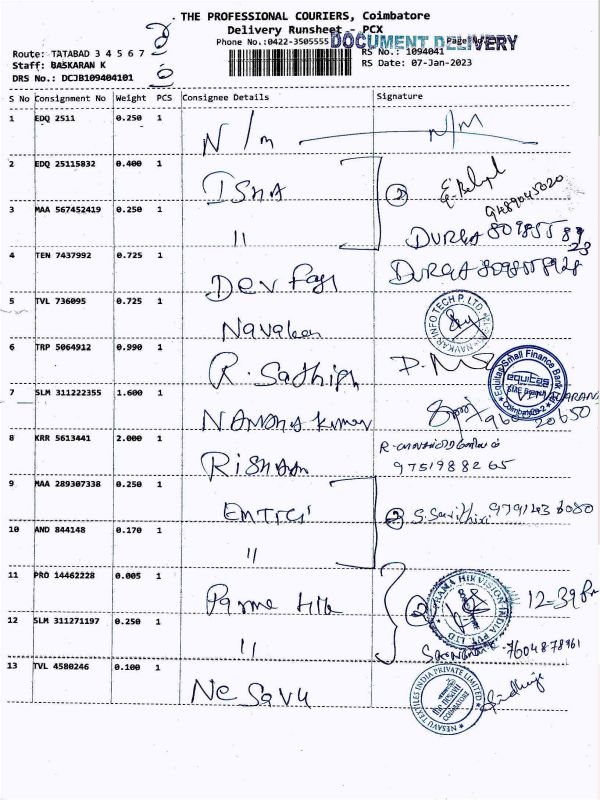 THE PROFESSIONAL COURIERS, Coimbatore
Delivery Runsheet - PCX
Phone No.:0422-3505555 DOCUMENT DELIVERY
Route: TATABAD 3 4 5 6 7
RS No.: 1094041
Staff: BASKARAN K
RS Date: 07-Jan-2023
DRS No.: DCJB109404101
S No Consignment No Weight PCS Consignee Details Signature
1 EDQ 2511 0.250 1 N/m N/M
2 EDQ 25115832 0.400 1 ISHA 2
9489045020
3 MAA 567452419 0.250 1 " DURGA
4 TEN 7437992 0.725 1 Dev DURGA 8098558928
5 TVL 736095 0.725 1 NAVKAR INFO TECH P. LTD.
6 TRP 5064912 0.990 1 R. Sathish Equitas Small Finance Bank
equitas
SME Branch
Coimbatore-2
7 SLM 311222355 1.600 1 NANDHA Kumar
8 KRR 5613441 2.000 1
9751988265
9 MAA 289307338 0.250 1 2 S. 9791436080
10 AND 844148 0.170 1 "
11 PRO 14462228 0.005 1 Parma Hik 2 PRAMA HIKVISION INDIA PVT LTD 12-39 Pm
12 SLM 311271197 0.250 1 " 7604878961
13 TVL 4580246 0.100 1 Nesavu NESAVU TEXTILES INDIA PRIVATE LIMITED
COIMBATORE